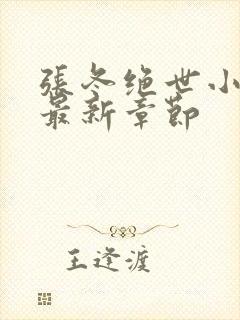 張冬绝世小
最新章節
王逢渡